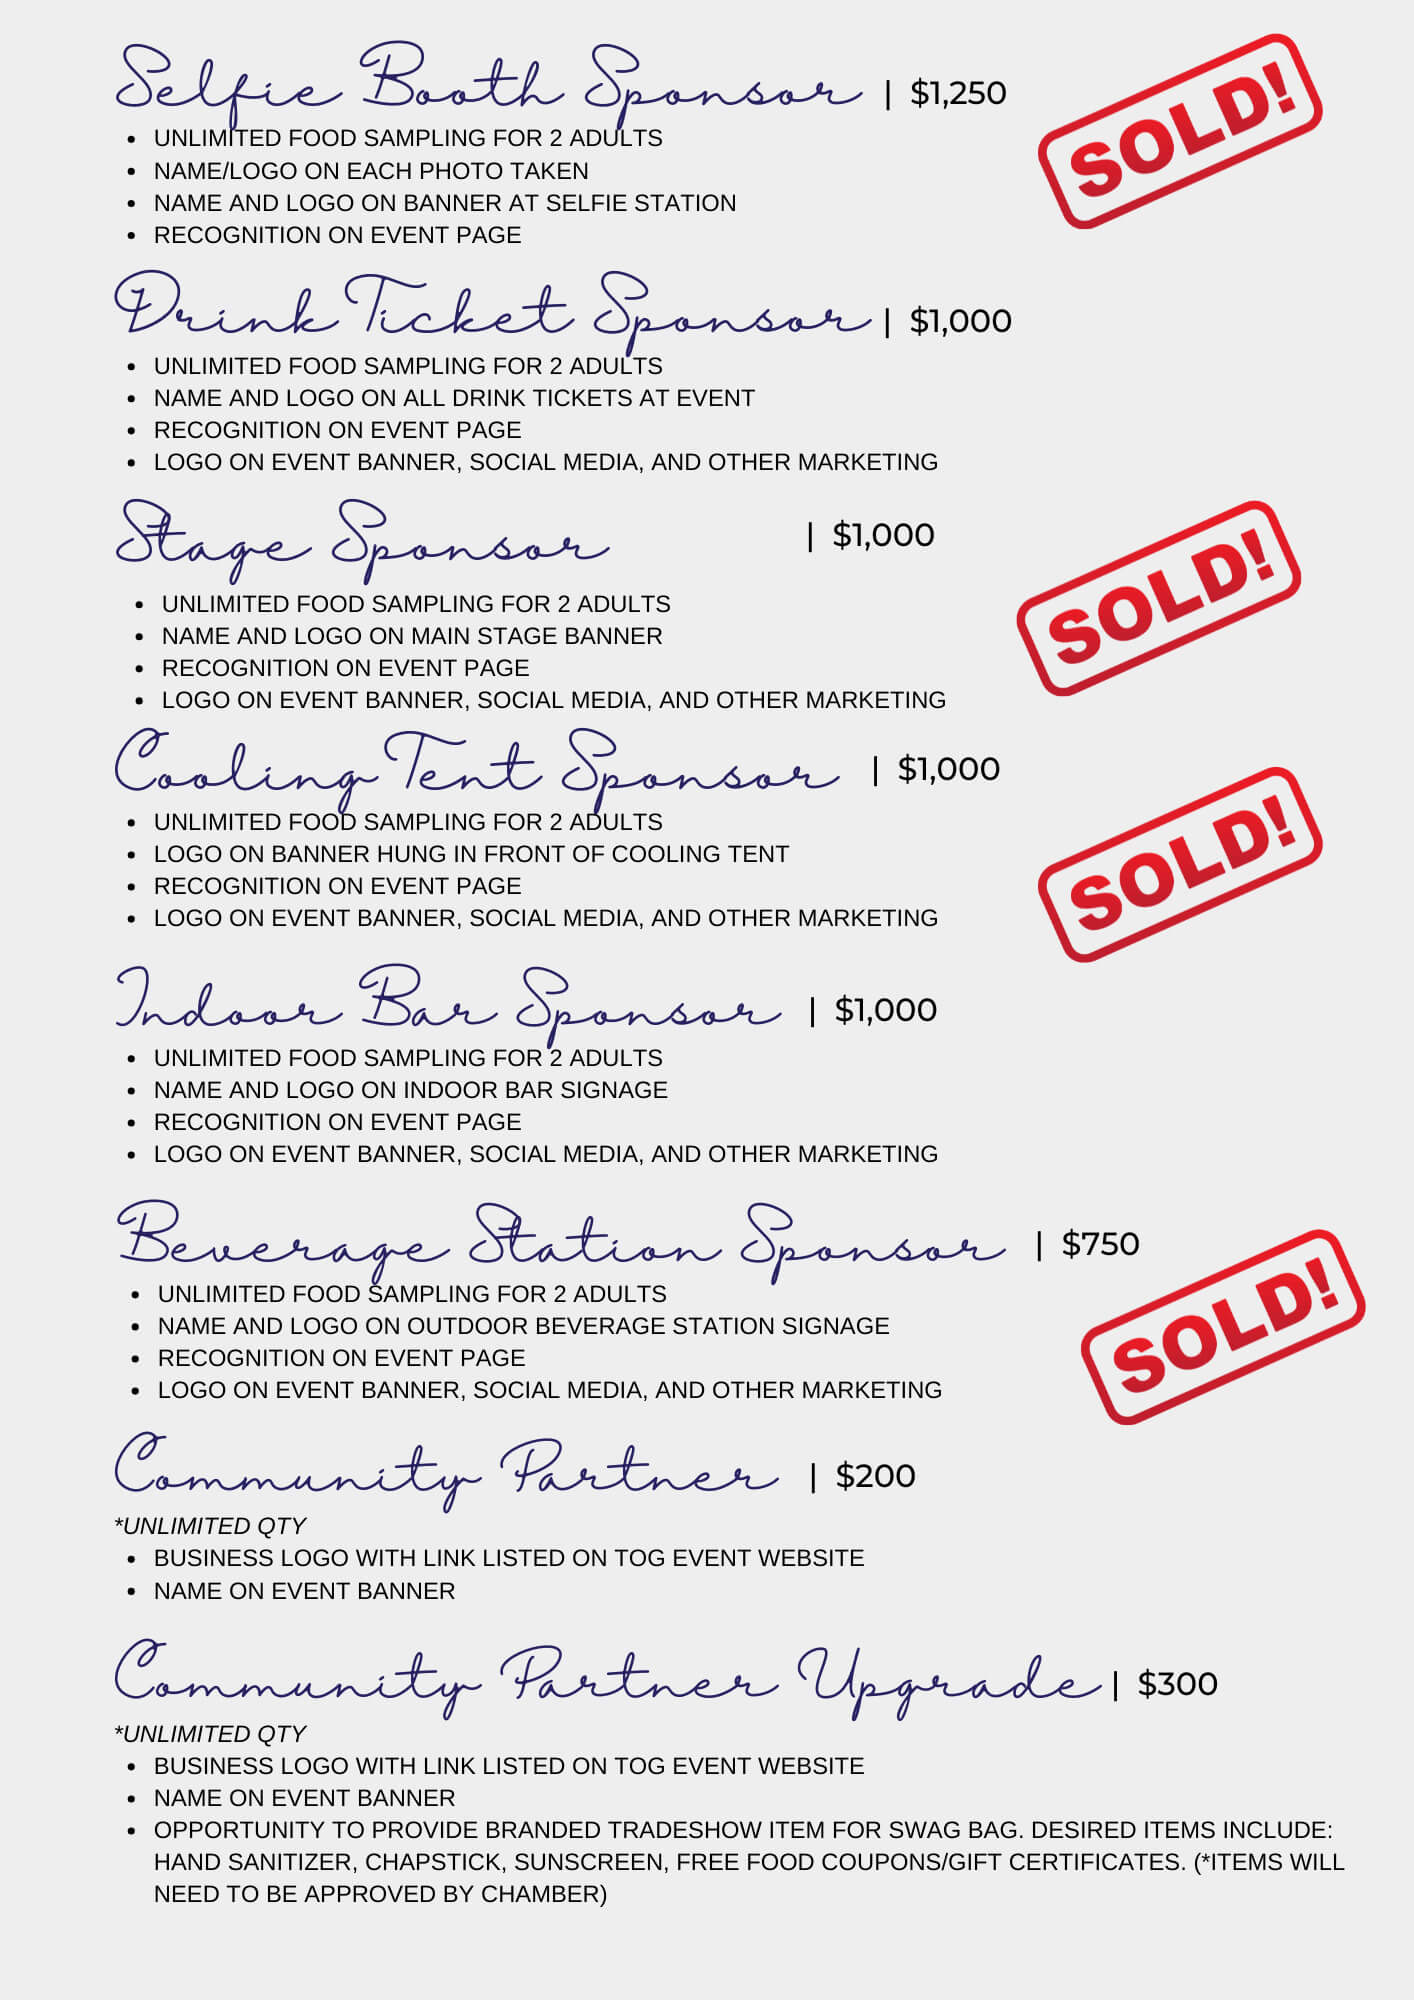 Selfie Booth Sponsor | $1,250
SOLD!
• UNLIMITED FOOD SAMPLING FOR 2 ADULTS
• NAME/LOGO ON EACH PHOTO TAKEN
• NAME AND LOGO ON BANNER AT SELFIE STATION
• RECOGNITION ON EVENT PAGE
Drink Ticket Sponsor | $1,000
• UNLIMITED FOOD SAMPLING FOR 2 ADULTS
• NAME AND LOGO ON ALL DRINK TICKETS AT EVENT
• RECOGNITION ON EVENT PAGE
• LOGO ON EVENT BANNER, SOCIAL MEDIA, AND OTHER MARKETING
Stage Sponsor | $1,000
SOLD!
• UNLIMITED FOOD SAMPLING FOR 2 ADULTS
• NAME AND LOGO ON MAIN STAGE BANNER
• RECOGNITION ON EVENT PAGE
• LOGO ON EVENT BANNER, SOCIAL MEDIA, AND OTHER MARKETING
Cooling Tent Sponsor | $1,000
SOLD!
• UNLIMITED FOOD SAMPLING FOR 2 ADULTS
• LOGO ON BANNER HUNG IN FRONT OF COOLING TENT
• RECOGNITION ON EVENT PAGE
• LOGO ON EVENT BANNER, SOCIAL MEDIA, AND OTHER MARKETING
Indoor Bar Sponsor | $1,000
• UNLIMITED FOOD SAMPLING FOR 2 ADULTS
• NAME AND LOGO ON INDOOR BAR SIGNAGE
• RECOGNITION ON EVENT PAGE
• LOGO ON EVENT BANNER, SOCIAL MEDIA, AND OTHER MARKETING
Beverage Station Sponsor | $750
SOLD!
• UNLIMITED FOOD SAMPLING FOR 2 ADULTS
• NAME AND LOGO ON OUTDOOR BEVERAGE STATION SIGNAGE
• RECOGNITION ON EVENT PAGE
• LOGO ON EVENT BANNER, SOCIAL MEDIA, AND OTHER MARKETING
Community Partner | $200
*UNLIMITED QTY
• BUSINESS LOGO WITH LINK LISTED ON TOG EVENT WEBSITE
• NAME ON EVENT BANNER
Community Partner Upgrade | $300
*UNLIMITED QTY
• BUSINESS LOGO WITH LINK LISTED ON TOG EVENT WEBSITE
• NAME ON EVENT BANNER
• OPPORTUNITY TO PROVIDE BRANDED TRADESHOW ITEM FOR SWAG BAG. DESIRED ITEMS INCLUDE:
HAND SANITIZER, CHAPSTICK, SUNSCREEN, FREE FOOD COUPONS/GIFT CERTIFICATES. (*ITEMS WILL
NEED TO BE APPROVED BY CHAMBER)